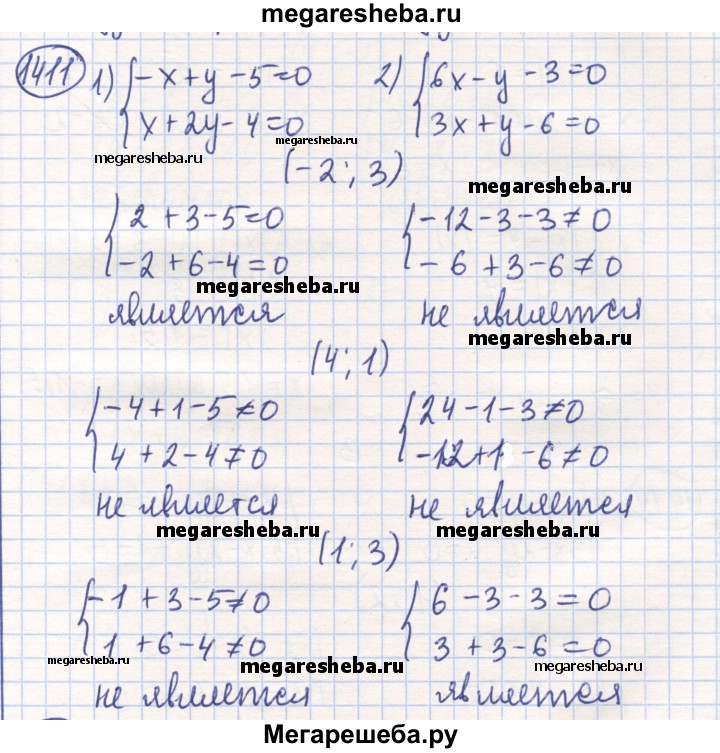 megaresheba.ru
1411 1) { -x+y-5=0 2) { 6x-y-3=0
x+2y-4=0 3x+y-6=0
megaresheba.ru megaresheba.ru
(-2; 3) megaresheba.ru
{ 2+3-5=0 { -12-3-3≠0
-2+6-4=0 -6+3-6≠0
megaresheba.ru
является не является
megaresheba.ru
(4; 1)
{ -4+1-5≠0 { 24-1-3≠0
4+2-4≠0 -12+1-6≠0
не явлется не является
megaresheba.ru megaresheba.ru
(1; 3)
{ -1+3-5≠0 { 6-3-3=0
1+6-4≠0 3+3-6=0
megaresheba.ru megaresheba.ru megaresheba.ru
не является является
Мегарешеба.ру